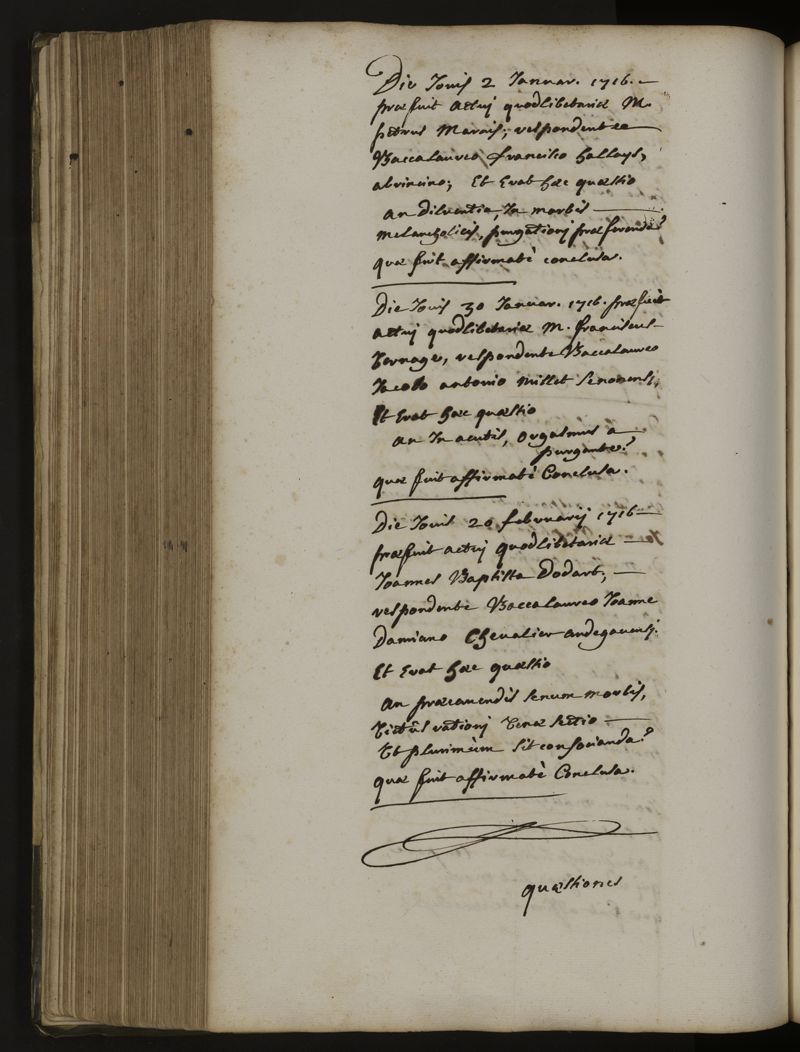 Die Jovis 2 Januar. 1716. —
præfuit actui quodlibetariæ M.
petrus Marais, respondente
Baccalaureo francisco hallays,
abrincino; Et Erat hæc quæstio
an diluentia, In morbis —
melancholicis, purgationi præferenda?
quæ fuit affirmatè conclusa.
Die Jovis 30 Januar. 1716. præfuit
actui quodlibetariæ M. franciscus
Vernage, respondente Baccalaureo
Jacobo antonio millet senonensi,
Et Erat hæc quæstio
an In acutis, orgasmus a
purgante?
quæ fuit affirmatè Conclusa.
Die Jovis 20 februarij 1716 —
præfuit actui quodlibetariæ —
Joannes Baptista Dodart, —
respondente Baccalaureo Joanne
Damiano Chevalier andegavensi.
Et Erat hæc quæstio
an præcavendis senum morbis,
Victûs rationi Venæ sectio —
Ut plurimùm sit consocianda?
quæ fuit affirmatè Conclusa.
quæstiones